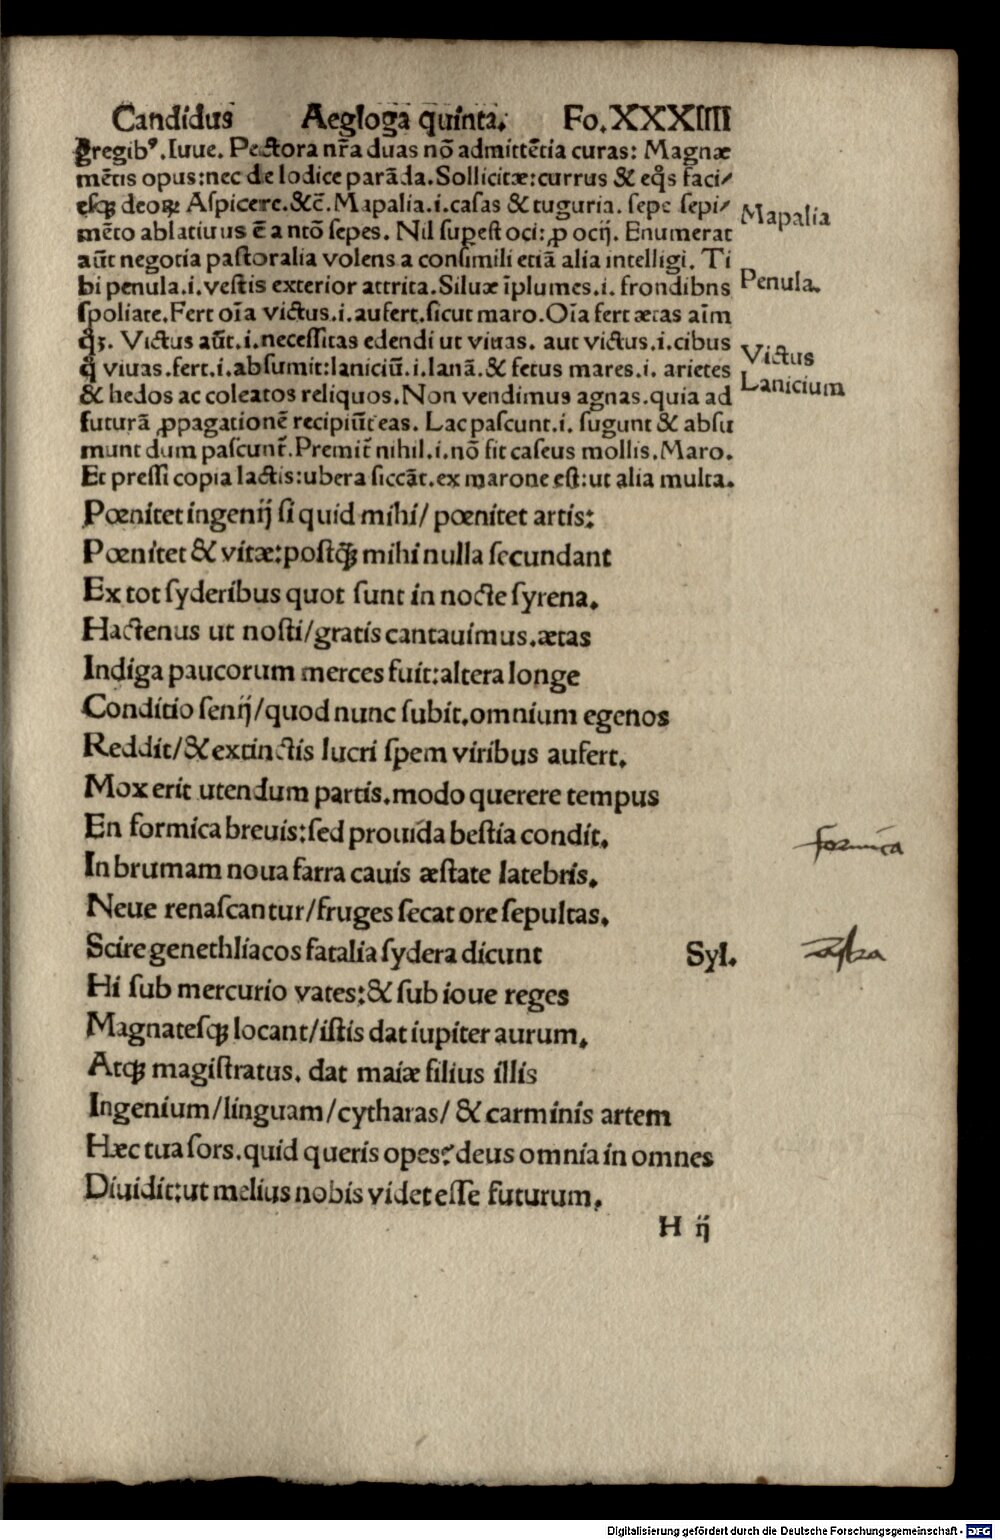 Candidus Aegloga quinta. Fo.XXXIIII
gregibꝰ.Iuue. Pectora nr̄a duas nō admittētia curas: Magnæ
mētis opus:nec de lodice parāda.Sollicitæ:currus & eq̄s faci/
esq̢ deoꝝ Aspicere.&c̄.Mapalia.i.casas & tuguria. sepe sepi/
mēto ablatiuus ē a ntō sepes. Nil supest oci:ꝓ ocij. Enumerat
aūt negotia pastoralia volens a consimili etiā alia intelligi. Ti
bi penula.i.vestis exterior attrita.Siluæ īplumes.i. frondibns
spoliate.Fert oīa victus.i.aufert.sicut maro.Oīa fert ætas aīm
q̄ꝫ. Victus aūt.i.necessitas edendi ut viuas. aut victus.i.cibus
q̄ viuas.fert.i.absumit:laniciū.i.lanā.& fetus mares.i. arietes
& hedos ac coleatos reliquos.Non vendimus agnas.quia ad
futurā ꝓpagationē recipiūt eas. Lac pascunt.i. sugunt & absu
munt dum pascunt̄.Premit̄ nihil.i.nō fit caseus mollis.Maro.
Et pressi copia lactis:ubera siccāt.ex marone est:ut alia multa.
Mapalia
Penula.
Victus
Lanicium
Pœnitet ingenij si quid mihi/ pœnitet artis:
Pœnitet & vitæ:postq̄ mihi nulla secundant
Ex tot syderibus quot sunt in nocte syrena.
Hactenus ut nosti/gratis cantauimus.ætas
Indiga paucorum merces fuit:altera longe
Conditio senij/quod nunc subit.omnium egenos
Reddit/& extinctis lucri spem viribus aufert.
Mox erit utendum partis.modo querere tempus
En formica breuis:sed prouida bestia condit.
formica
In brumam noua farra cauis æstate latebris.
Neue renascantur/fruges secat ore sepultas.
Scire genethliacos fatalia sydera dicunt Syl.
Hi sub mercurio vates:& sub ioue reges
Magnatesq̢ locant/istis dat iupiter aurum.
Atq̢ magistratus. dat maiæ filius illis
Ingenium/linguam/cytharas/ & carminis artem
Hæc tua sors.quid queris opes?deus omnia in omnes
Diuidit:ut melius nobis videt esse futurum.
H ij
Digitalisierung gefördert durch die Deutsche Forschungsgemeinschaft - DFG